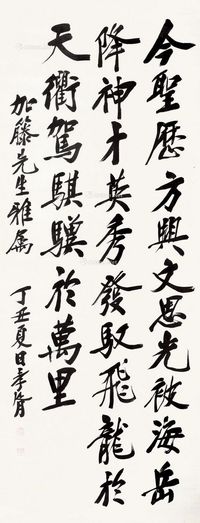 今聖歷方興文思光被海岳
降神才英秀發馭飛龍於
天衢駕騏驥於萬里
加藤先生雅属
丁丑夏日孝胥